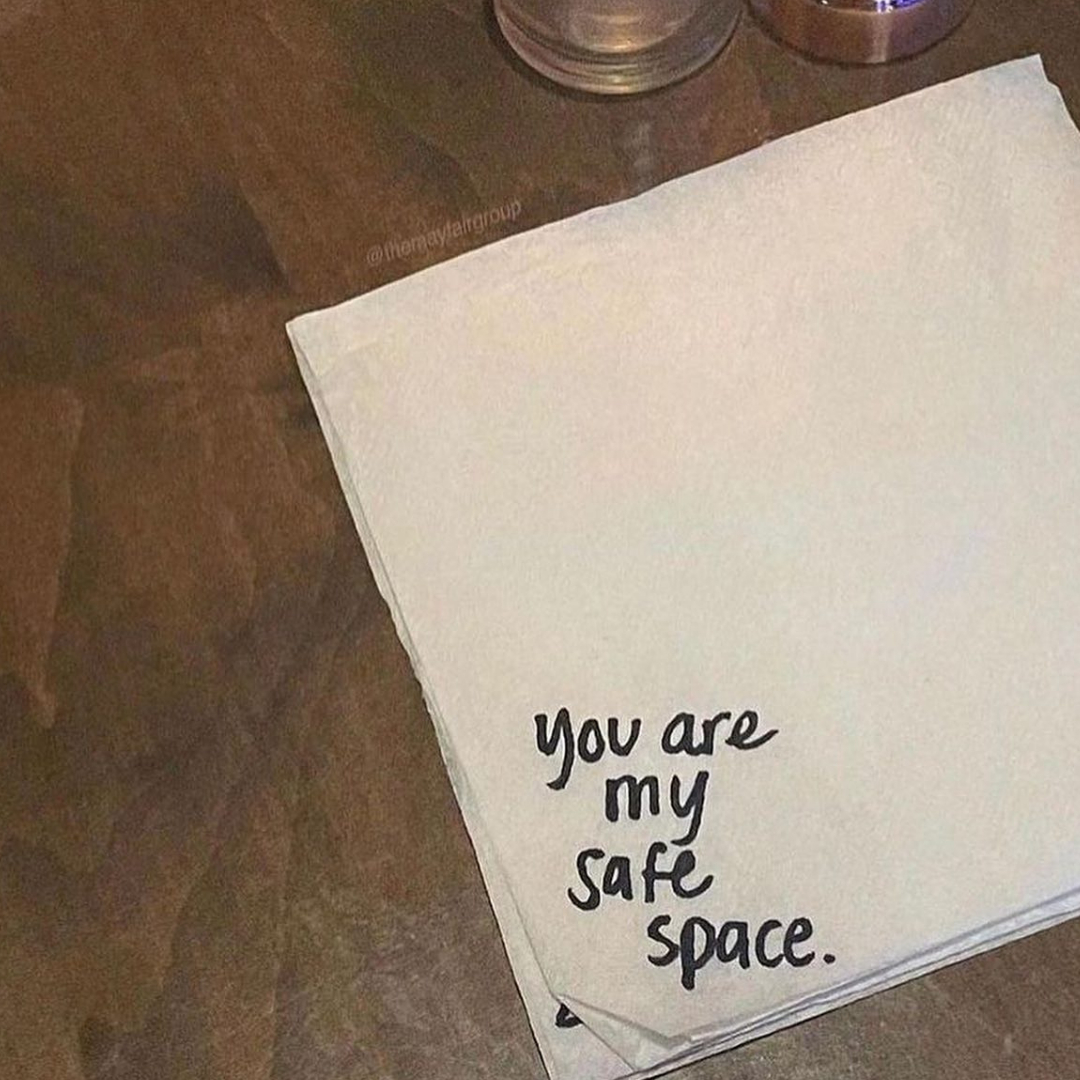 @themayfairgroup
you are
my
safe
space.